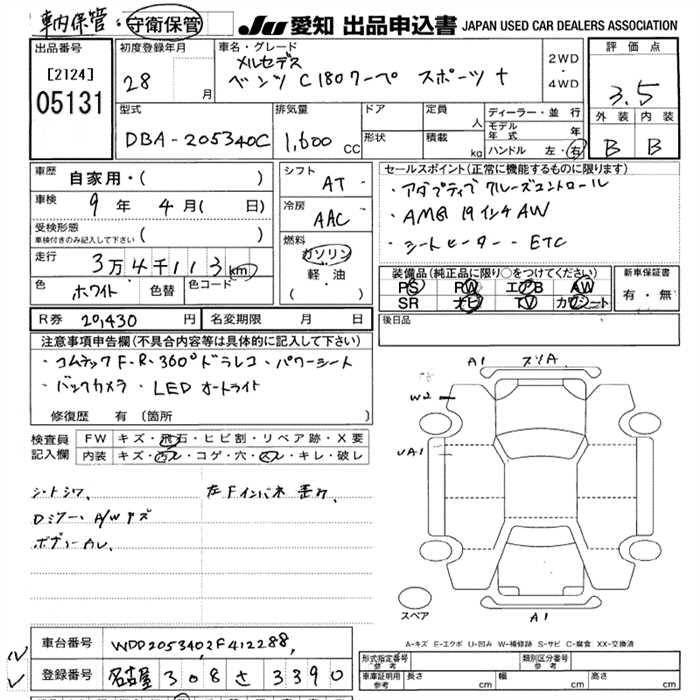 車内保管・守衛保管
JU 愛知 出品申込書 JAPAN USED CAR DEALERS ASSOCIATION
出品番号
[2124]
05131
初度登録年月
28
月
車名・グレード
メルセデス
ベンツ C180クーペ スポーツ+
2WD
・
4WD
評価点
3.5
外装 内装
B B
型式
DBA-205340C
排気量
1,600 CC
ドア
形状
定員
人
積載
kg
ディーラー・並行
モデル年式 年
ハンドル 左・右
車歴 自家用・( )
車検 9年 4月( 日)
受検形態
車検付きのみ記入して下さい ( )
走行 3万4千113km
色 ホワイト 色替 色コード
シフト AT
冷房 AAC
燃料
ガソリン
軽油
( ・ )
セールスポイント(正常に機能するものに限ります)
・アダプティブクルーズコントロール
・AMG 19インチAW
・シートヒーター・ETC
装備品(純正品に限り○をつけてください)
PS PW エアB AW
SR ナビ TV カワシート
新車保証書
有・無
R券 20,430円 名変期限 月 日
後日品
注意事項申告欄(不具合内容等は具体的に記入して下さい)
・コムテックF・R・360°ドラレコ・パワーシート
・バックカメラ・LEDオートライト
修復歴 有(箇所 )
検査員記入欄
FW キズ・飛石・ヒビ割・リペア跡・X要
内装 キズ・汚レ・コゲ・穴・スレ・キレ・破レ
シートシワ、
左Fインパネ
Dミラー、A/Wキズ
A1 スリA
W2
UA1
スペア
A1
A-キズ E-エクボ U-凹み W-補修跡 S-サビ C-腐食 XX-交換済
車台番号 WDD2053402F412288
登録番号 名古屋 308 さ 3390
形式指定番号 参考 類別区分番号 参考
車庫証明用 参考 長さ cm 幅 cm 高さ cm